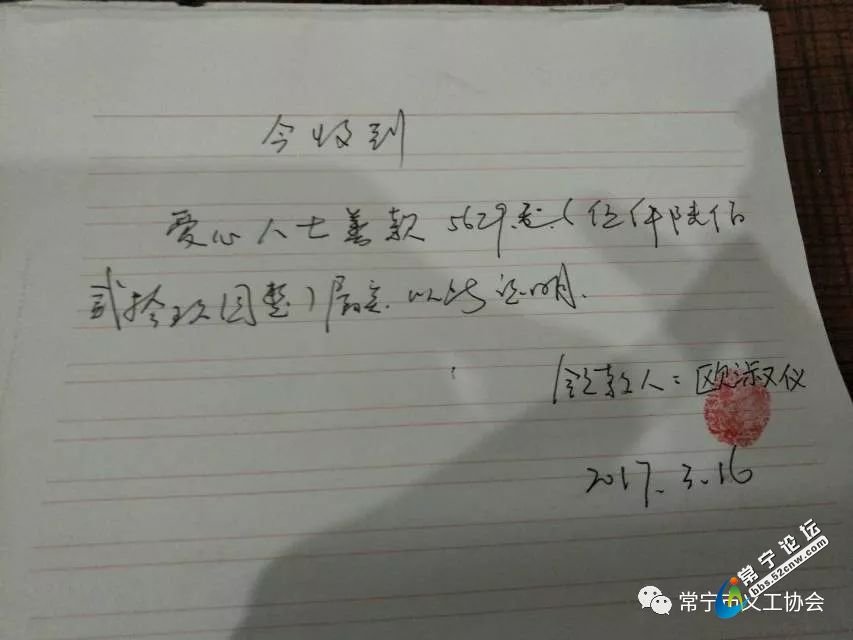 今收到
爱心人士善款5629元（伍仟陆佰
贰拾玖圆整）属实.以此证明.
领款人：欧淑仪
2017.3.16
常宁论坛
bbs.52cnw.com
常宁市义工协会